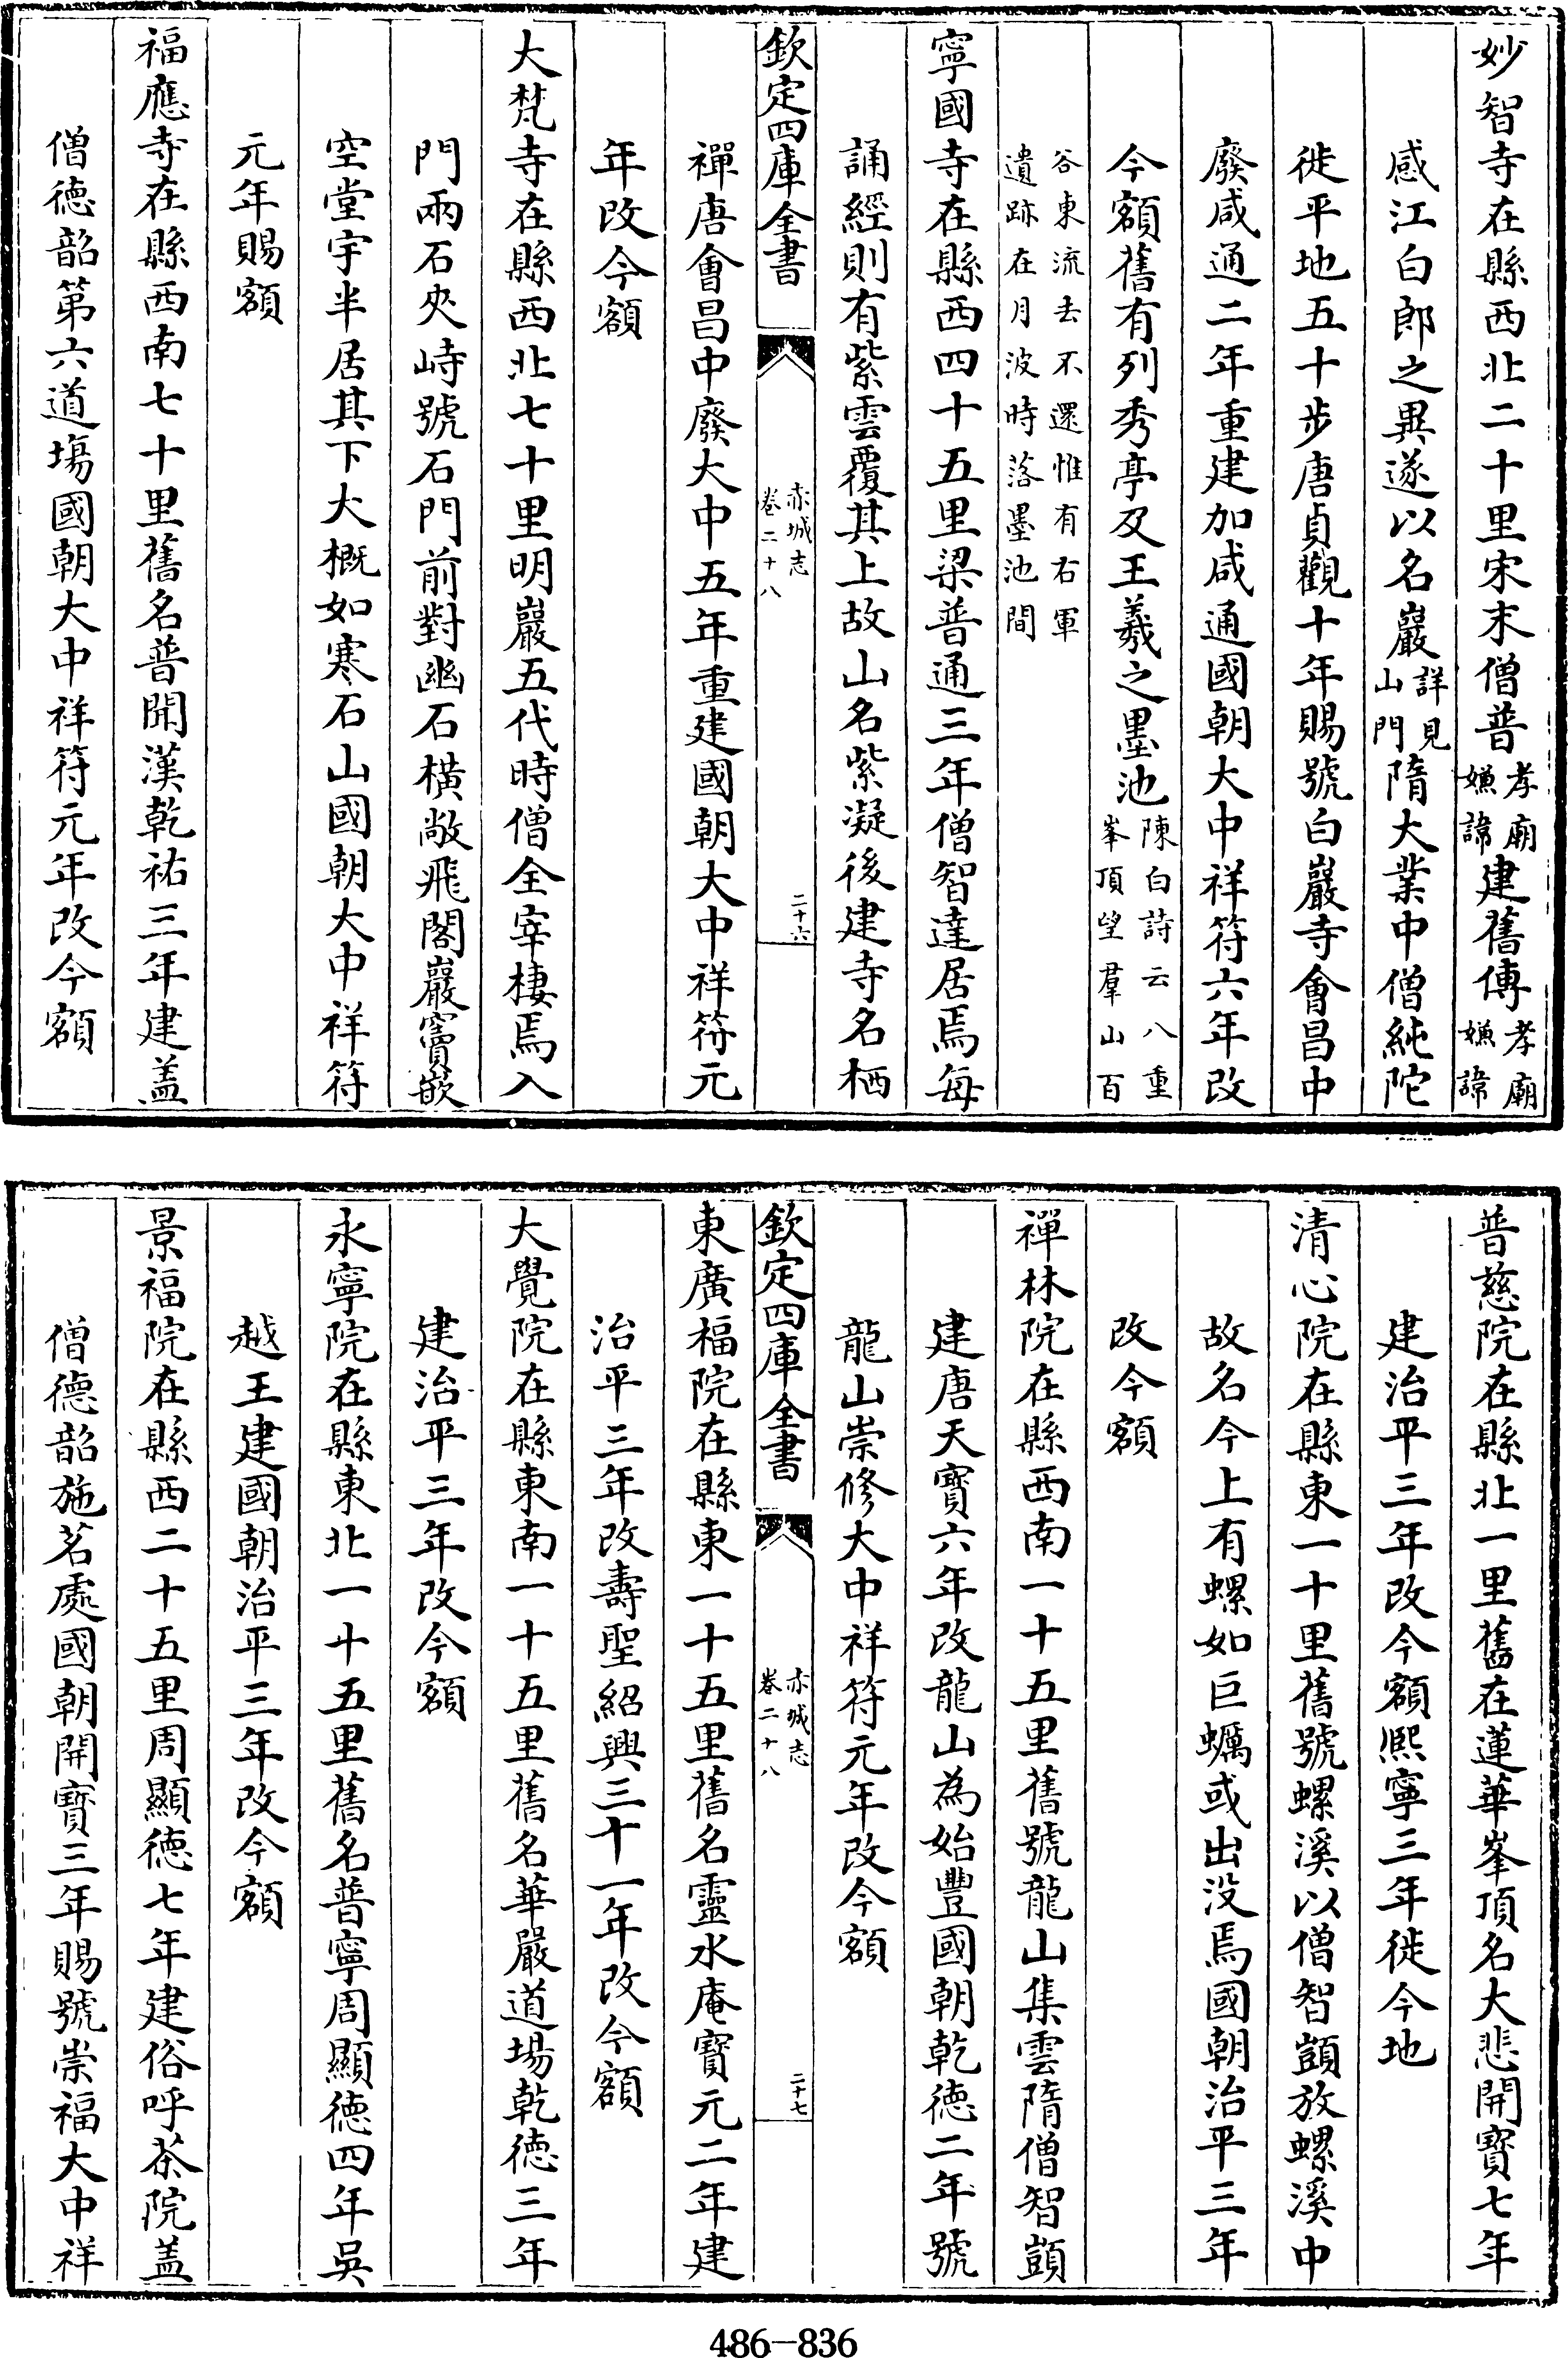 妙智寺在縣西北二十里宋末僧普孝廟嫌諱建舊傳孝廟嫌諱
感江白郎之異遂以名巖詳見山門隋大業中僧純陀
徙平地五十步唐貞觀十年賜號白巖寺會昌中
廢咸通二年重建加咸通國朝大中祥符六年改
今額舊有列秀亭及王羲之墨池陳白詩云八重峯頂望羣山百
谷東流去不還惟有右軍遺跡在月波時落墨池間
寧國寺在縣西四十五里梁普通三年僧智達居焉每
誦經則有紫雲覆其上故山名紫凝後建寺名栖
欽定四庫全書
赤城志
卷二十八
二十六
禪唐會昌中廢大中五年重建國朝大中祥符元
年改今額
大梵寺在縣西北七十里明巖五代時僧全宰棲焉入
門兩石夾峙號石門前對幽石橫敞飛閣巖竇嵌
空堂宇半居其下大概如寒石山國朝大中祥符
元年賜額
福應寺在縣西南七十里舊名普聞漢乾祐三年建盖
僧德韶第六道塲國朝大中祥符元年改今額
普慈院在縣北一里舊在蓮華峯頂名大悲開寶七年
建治平三年改今額熙寧三年徙今地
清心院在縣東一十里舊號螺溪以僧智顗放螺溪中
故名今上有螺如巨蠣或出没焉國朝治平三年
改今額
禪林院在縣西南一十五里舊號龍山集雲隋僧智顗
建唐天寶六年改龍山為始豐國朝乾德二年號
龍山崇修大中祥符元年改今額
欽定四庫全書
赤城志
卷二十八
二十七
東廣福院在縣東一十五里舊名靈水庵寶元二年建
治平三年改壽聖紹興三十一年改今額
大覺院在縣東南一十五里舊名華嚴道場乾德三年
建治平三年改今額
永寧院在縣東北一十五里舊名普寧周顯德四年吳
越王建國朝治平三年改今額
景福院在縣西二十五里周顯德七年建俗呼茶院盖
僧德韶施茗處國朝開寶三年賜號崇福大中祥
486-836